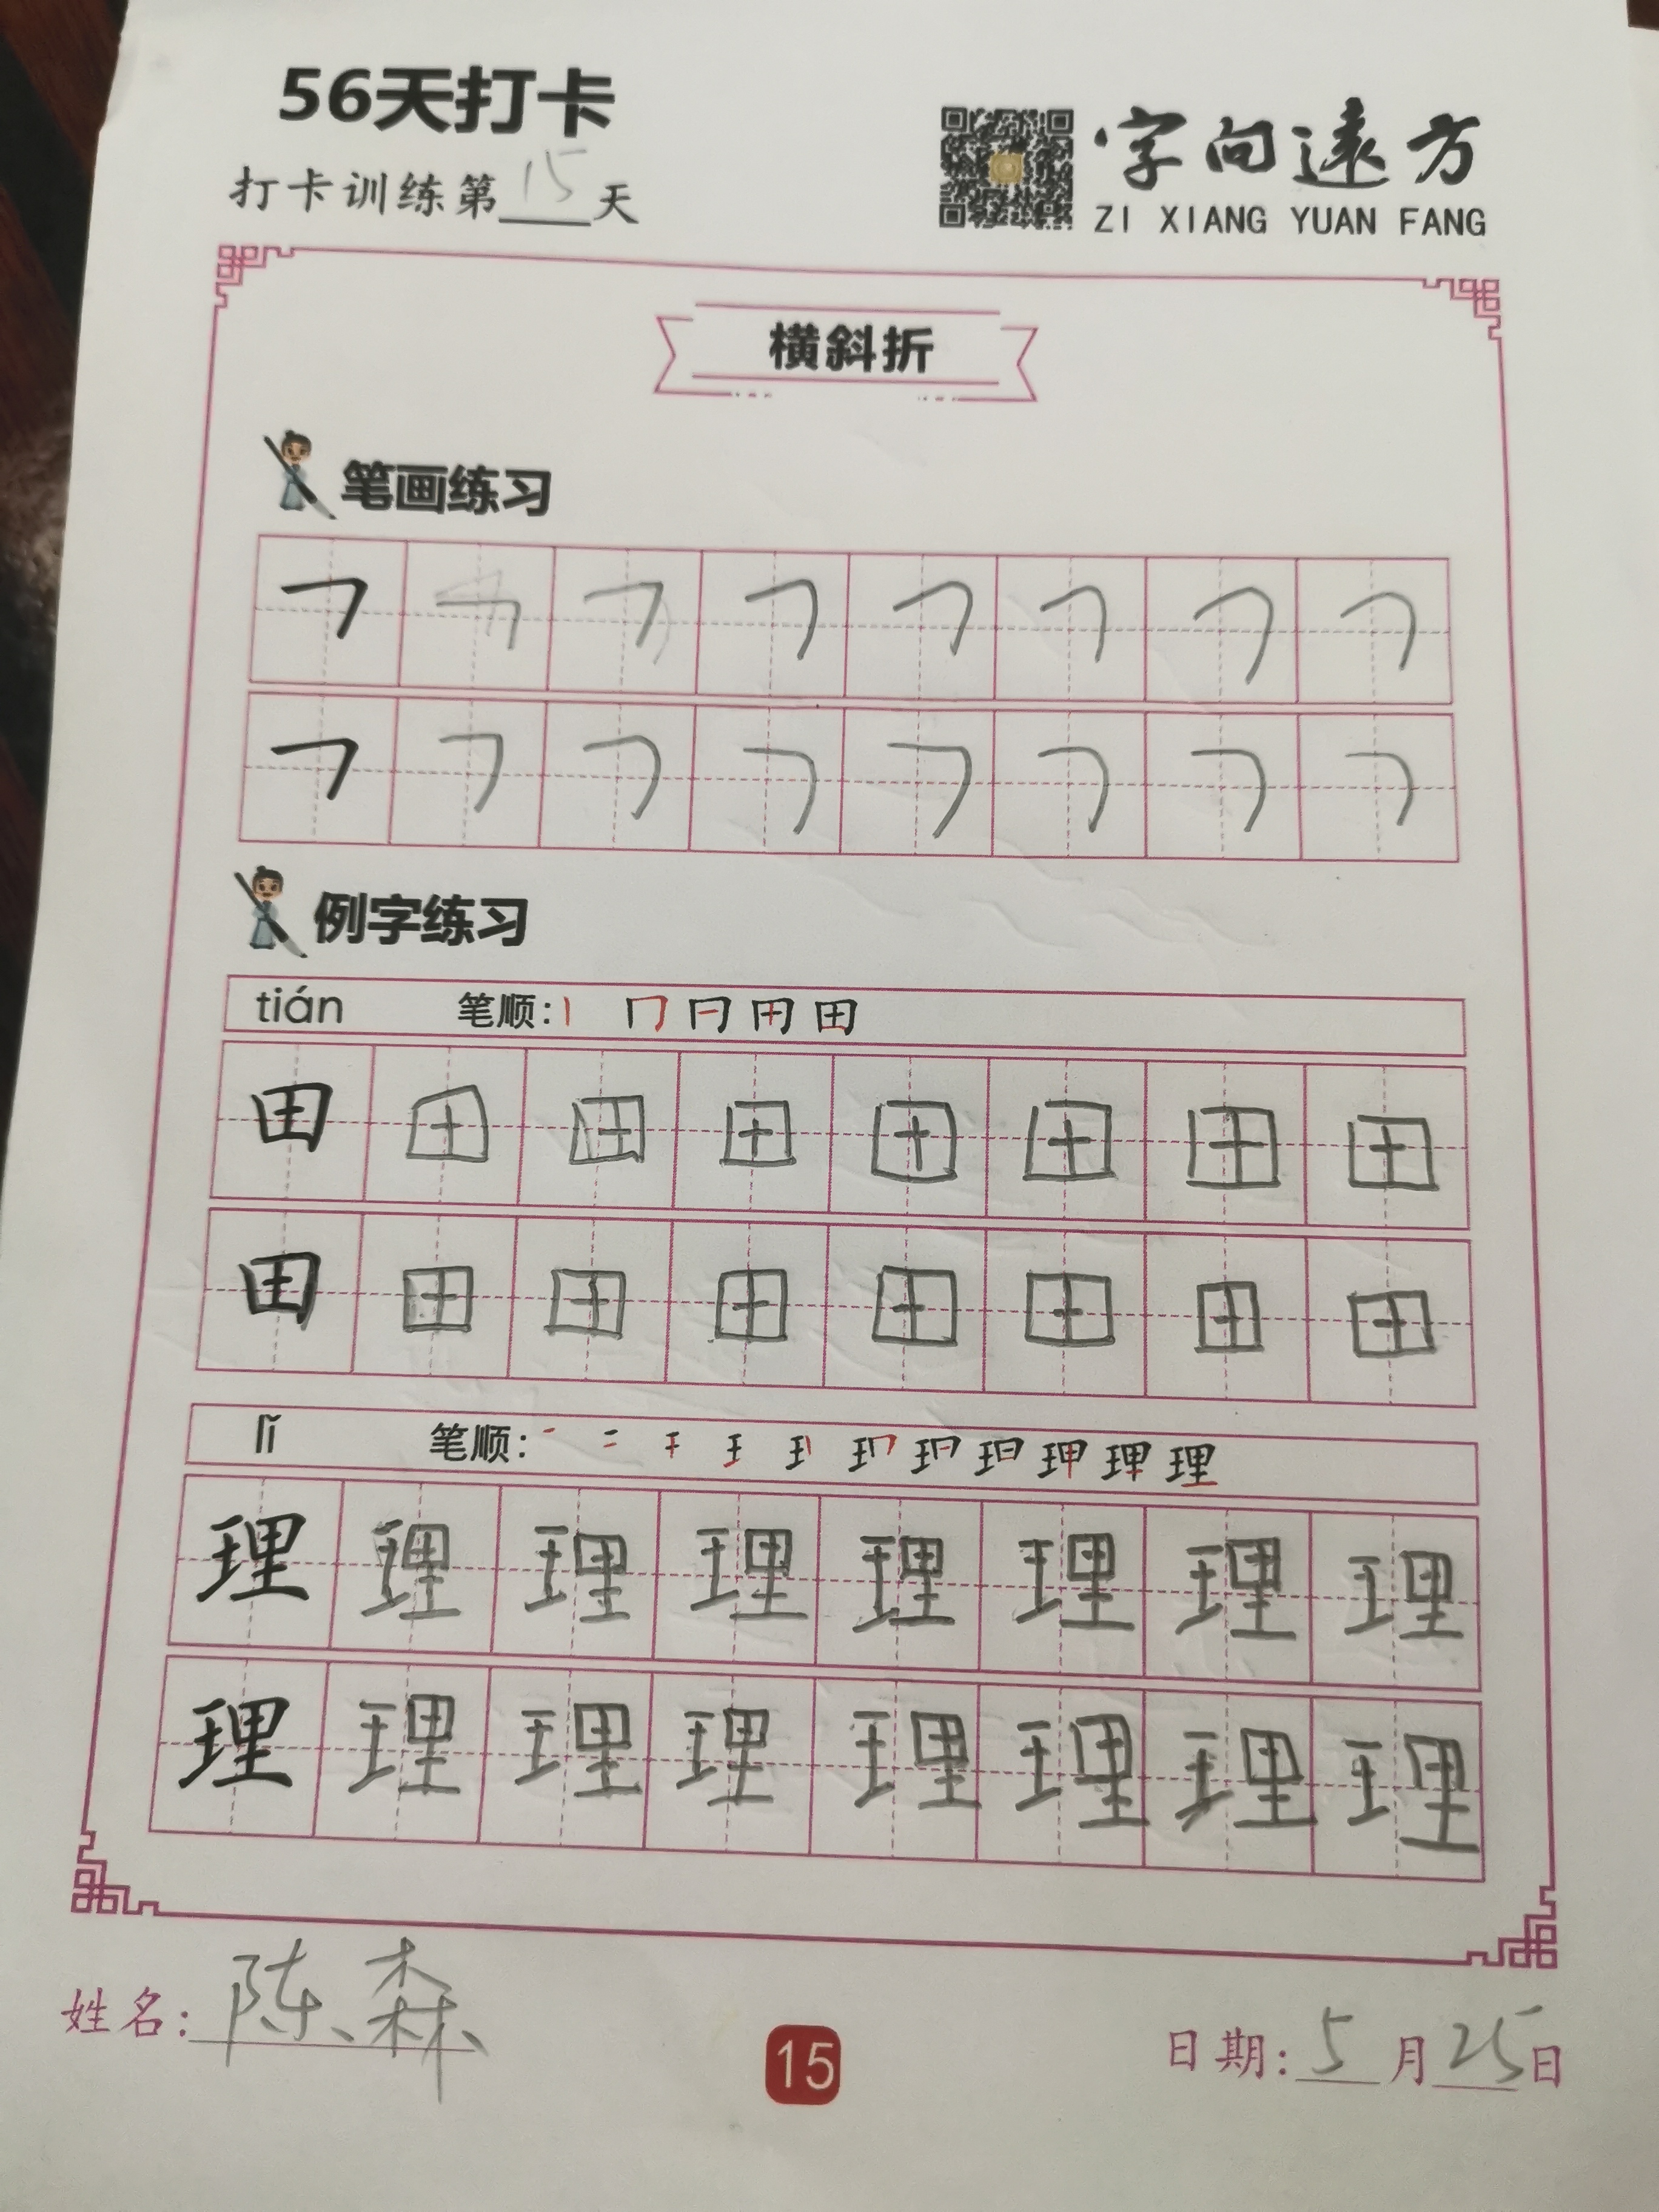 56天打卡
打卡训练第15天
字向远方
ZI XIANG YUAN FANG
横斜折
笔画练习
㇕ ㇕ ㇕ ㇕ ㇕ ㇕ ㇕ ㇕
㇕ ㇕ ㇕ ㇕ ㇕ ㇕ ㇕ ㇕
例字练习
tián 笔顺:
田 田 田 田 田 田 田 田
田 田 田 田 田 田 田 田
lǐ 笔顺:
理 理 理 理 理 理 理 理
理 理 理 理 理 理 理 理
姓名: 陈森
15
日期: 5月25日